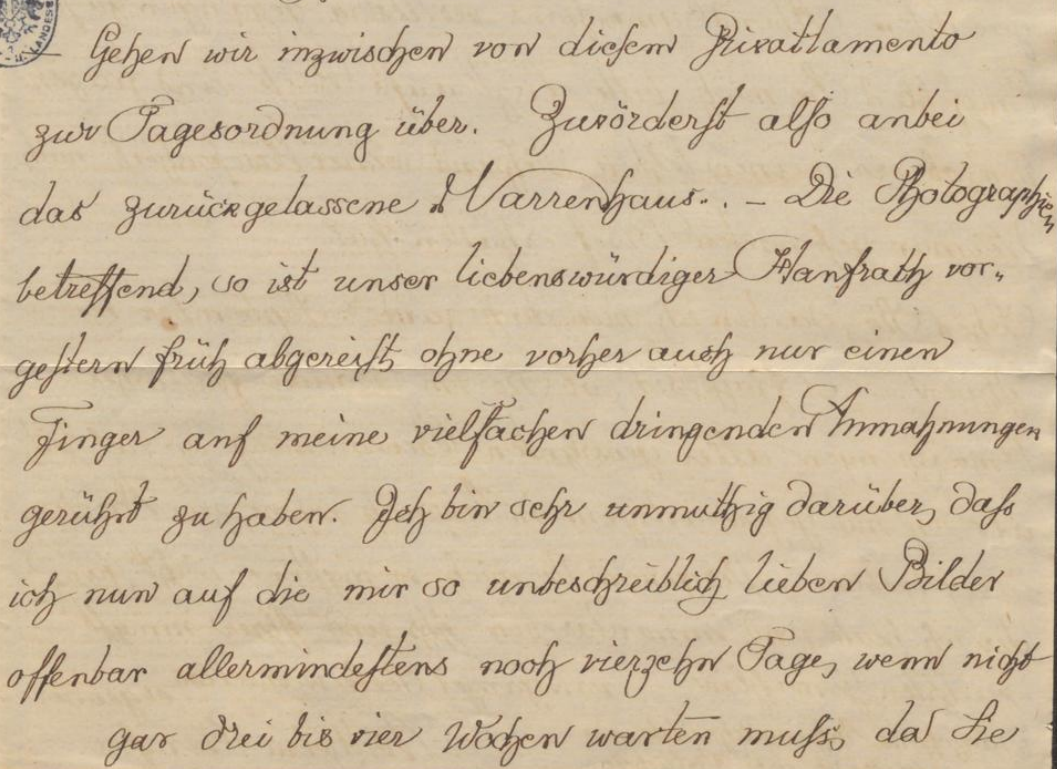 LANDESB
Gehen wir inzwischen von diesem Privatlamento
zur Tagesordnung über. Zuvörderst also anbei
das zurückgelassene „Narrenhaus“. – Die Photographien
betreffend, so ist unser liebenswürdiger Hanfrath vor-
gestern früh abgereist, ohne vorher auch nur einen
Finger auf meine vielfachen dringenden Anmahnungen
gerührt zu haben. Ich bin sehr unmuthig darüber, dass
ich nun auf die mir so unbeschreiblich lieben Bilder
offenbar allermindestens noch vierzehn Tage, wenn nicht
gar drei bis vier Wochen warten muss, da Sie